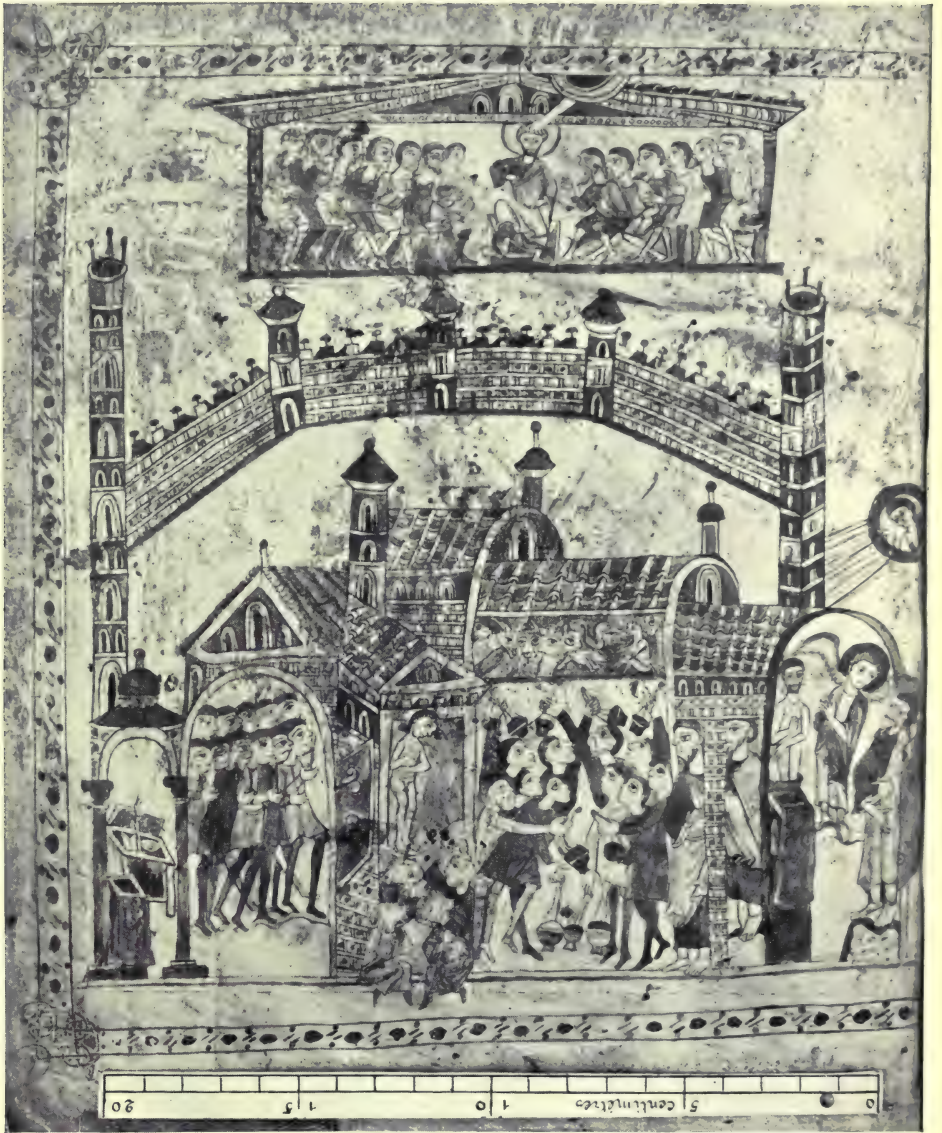 0 5 centimètres 10 15 20